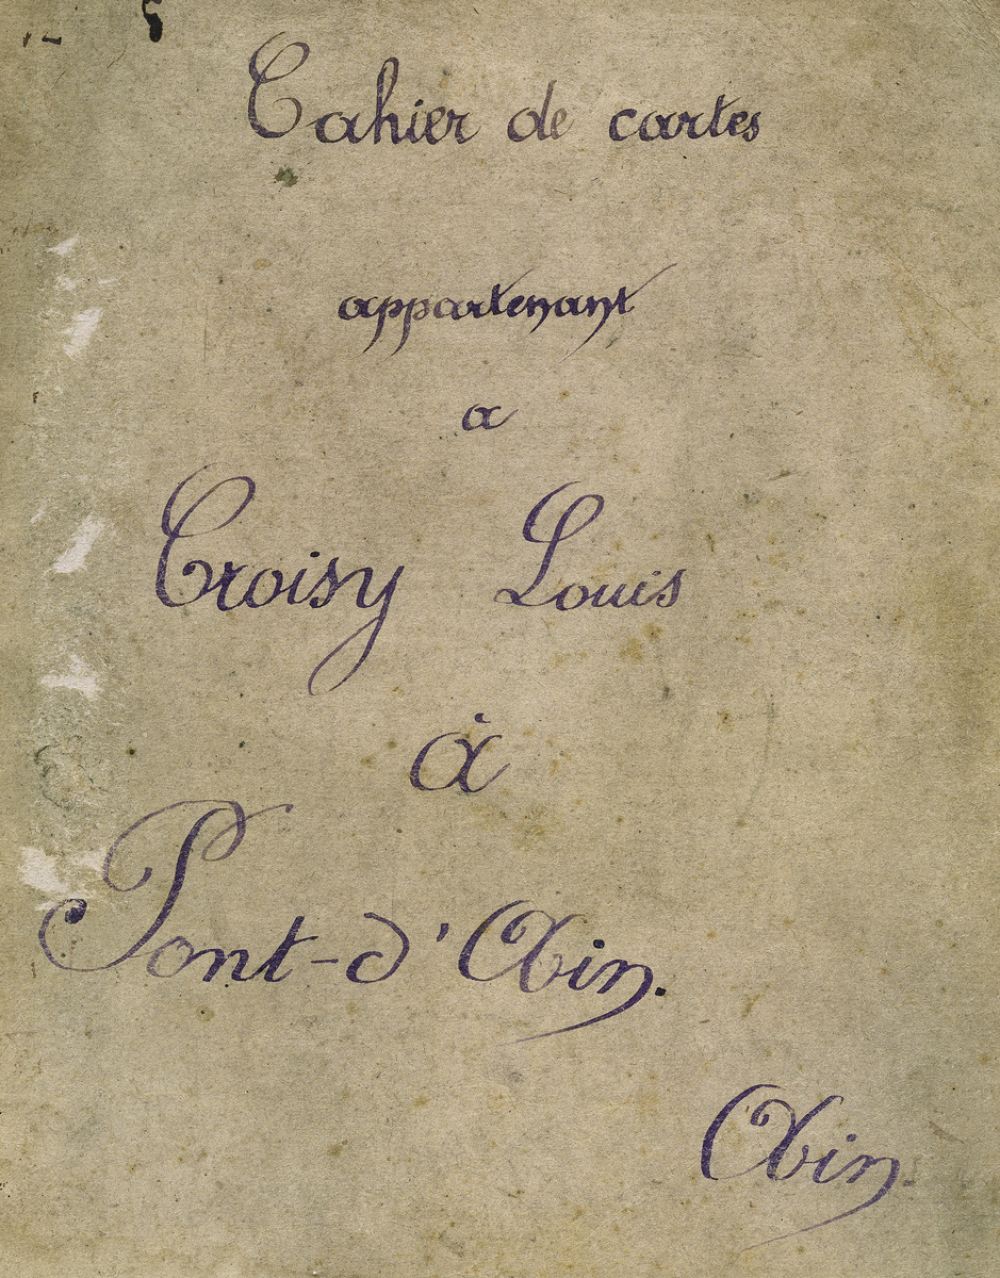 Cahier de cartes
appartenant
a
Croisy Louis
à
Pont-d'Ain.
Ain.